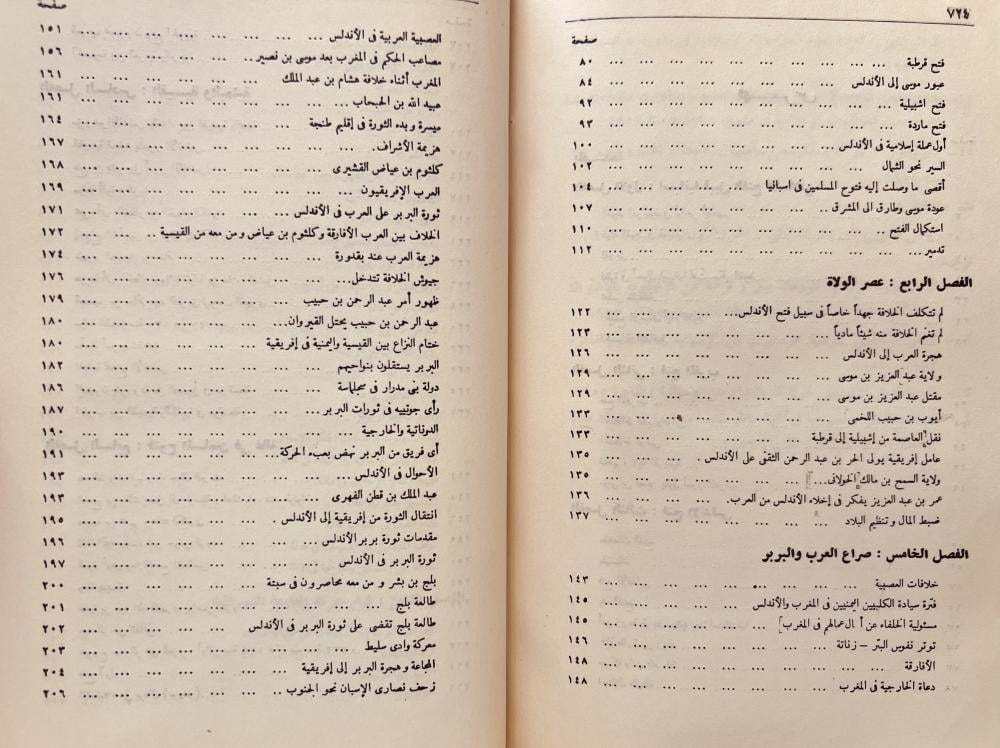 ٧٢٤
صفحة
فتح قرطبة ... ... ... ... ... ... ... ... ٨٠
عبور موسى إلى الأندلس ... ... ... ... ... ... ... ٨٤
فتح اشبيلية ... ... ... ... ... ... ... ... ٩٢
فتح ماردة ... ... ... ... ... ... ... ... ٩٣
أول عملة إسلامية فى الأندلس ... ... ... ... ... ... ١٠٠
السير نحو الشمال ... ... ... ... ... ... ... ١٠٢
أقصى ما وصلت إليه فتوح المسلمين فى اسبانيا ... ... ... ... ١٠٤
عودة موسى وطارق الى المشرق ... ... ... ... ... ... ١٠٧
استكمال الفتح ... ... ... ... ... ... ... ... ١١٠
تدمير ... ... ... ... ... ... ... ... ١١٢
الفصل الرابع : عصر الولاة
لم تتكلف الخلافة جهداً خاصاً فى سبيل فتح الأندلس ... ... ... ... ١٢٢
لم تغنم الخلافة منه شيئاً مادياً ... ... ... ... ... ... ١٢٣
هجرة العرب إلى الأندلس ... ... ... ... ... ... ١٢٦
ولاية عبد العزيز بن موسى ... ... ... ... ... ... ١٢٩
مقتل عبد العزيز بن موسى ... ... ... ... ... ... ١٢٩
أيوب بن حبيب اللخمى ... ... ... ... ... ... ١٣٣
نقل العاصمة من إشبيلية إلى قرطبة ... ... ... ... ... ١٣٣
عامل إفريقية يولى الحر بن عبد الرحمن الثقفى على الأندلس . ... ... ... ١٣٥
ولاية السمح بن مالك الخولاف ... ... ... ... ... ... ١٣٥
عمر بن عبد العزيز يفكر فى إخلاء الأندلس من العرب . ... ... ... ١٣٦
ضبط المال وتنظيم البلاد ... ... ... ... ... ... ١٣٧
الفصل الخامس : صراع العرب والبربر
خلافات العصبية ... ... ... ... ... ... ... ١٤٣
فترة سيادة الكلبيين اليمنيين فى المغرب والأندلس ... ... ... ... ١٤٥
مسئولية الخلفاء عن أ ال عمالهم فى المغرب ... ... ... ... ... ١٤٥
توتر نفوس البتر – زناتة ... ... ... ... ... ... ١٤٦
الأفارقة ... ... ... ... ... ... ... ... ١٤٨
دعاة الخارجية فى المغرب ... ... ... ... ... ... ١٤٨
صفحة
العصبية العربية فى الأندلس ... ... ... ... ... ... ١٥١
مصاعب الحكم فى المغرب بعد موسى بن نصير ... ... ... ... ... ١٥٦
المغرب أثناء خلافة هشام بن عبد الملك ... ... ... ... ... ١٦١
عبيد الله بن الحبحاب ... ... ... ... ... ... ... ١٦١
ميسرة وبدء الثورة فى إقليم طنجة ... ... ... ... ... ١٦٤
هزيمة الأشراف ... ... ... ... ... ... ... ١٦٧
كلثوم بن عياض القشيرى ... ... ... ... ... ... ١٦٨
العرب الإفريقيون ... ... ... ... ... ... ... ١٦٩
ثورة البربر على العرب فى الأندلس ... ... ... ... ... ١٧١
الخلاف بين العرب الأفارقة وكلثوم بن عياض ومن معه من القيسية ... ... ... ١٧٢
هزيمة العرب عند بقدورة ... ... ... ... ... ... ١٧٤
جيوش الخلافة تتدخل ... ... ... ... ... ... ... ١٧٦
ظهور أمر عبد الرحمن بن حبيب ... ... ... ... ... ... ١٧٩
عبد الرحمن بن حبيب يحتل القيروان ... ... ... ... ... ١٨٠
ختام النزاع بين القيسية واليمنية فى إفريقية ... ... ... ... ... ١٨٠
البربر يستقلون بنواحيهم ... ... ... ... ... ... ١٨٢
دولة بنى مدرار فى سجلماسة ... ... ... ... ... ... ١٨٦
رأى جوتييه فى ثورات البربر ... ... ... ... ... ... ١٨٧
الدوناتية والخارجية ... ... ... ... ... ... ... ١٩٠
أى فريق من البربر نهض بعبء الحركة ... ... ... ... ... ١٩١
الأحوال فى الأندلس ... ... ... ... ... ... ... ١٩٣
عبد الملك بن قطن الفهرى ... ... ... ... ... ... ١٩٣
انتقال الثورة من إفريقية إلى الأندلس . ... ... ... ... ... ١٩٥
مقدمات ثورة بربر الأندلس ... ... ... ... ... ... ١٩٦
ثورة البربر فى الأندلس ... ... ... ... ... ... ١٩٧
بلج بن بشر ومن معه محاصرون فى سبتة ... ... ... ... ... ٢٠٠
طالعة بلج ... ... ... ... ... ... ... ... ٢٠١
طالعة بلج تقضى على ثورة البربر فى الأندلس ... ... ... ... ٢٠٢
معركة وادى سليط ... ... ... ... ... ... ... ٢٠٣
المجاعة وهجرة البربر إلى إفريقية ... ... ... ... ... ٢٠٤
زحف نصارى الإسبان نحو الجنوب ... ... ... ... ... ٢٠٦